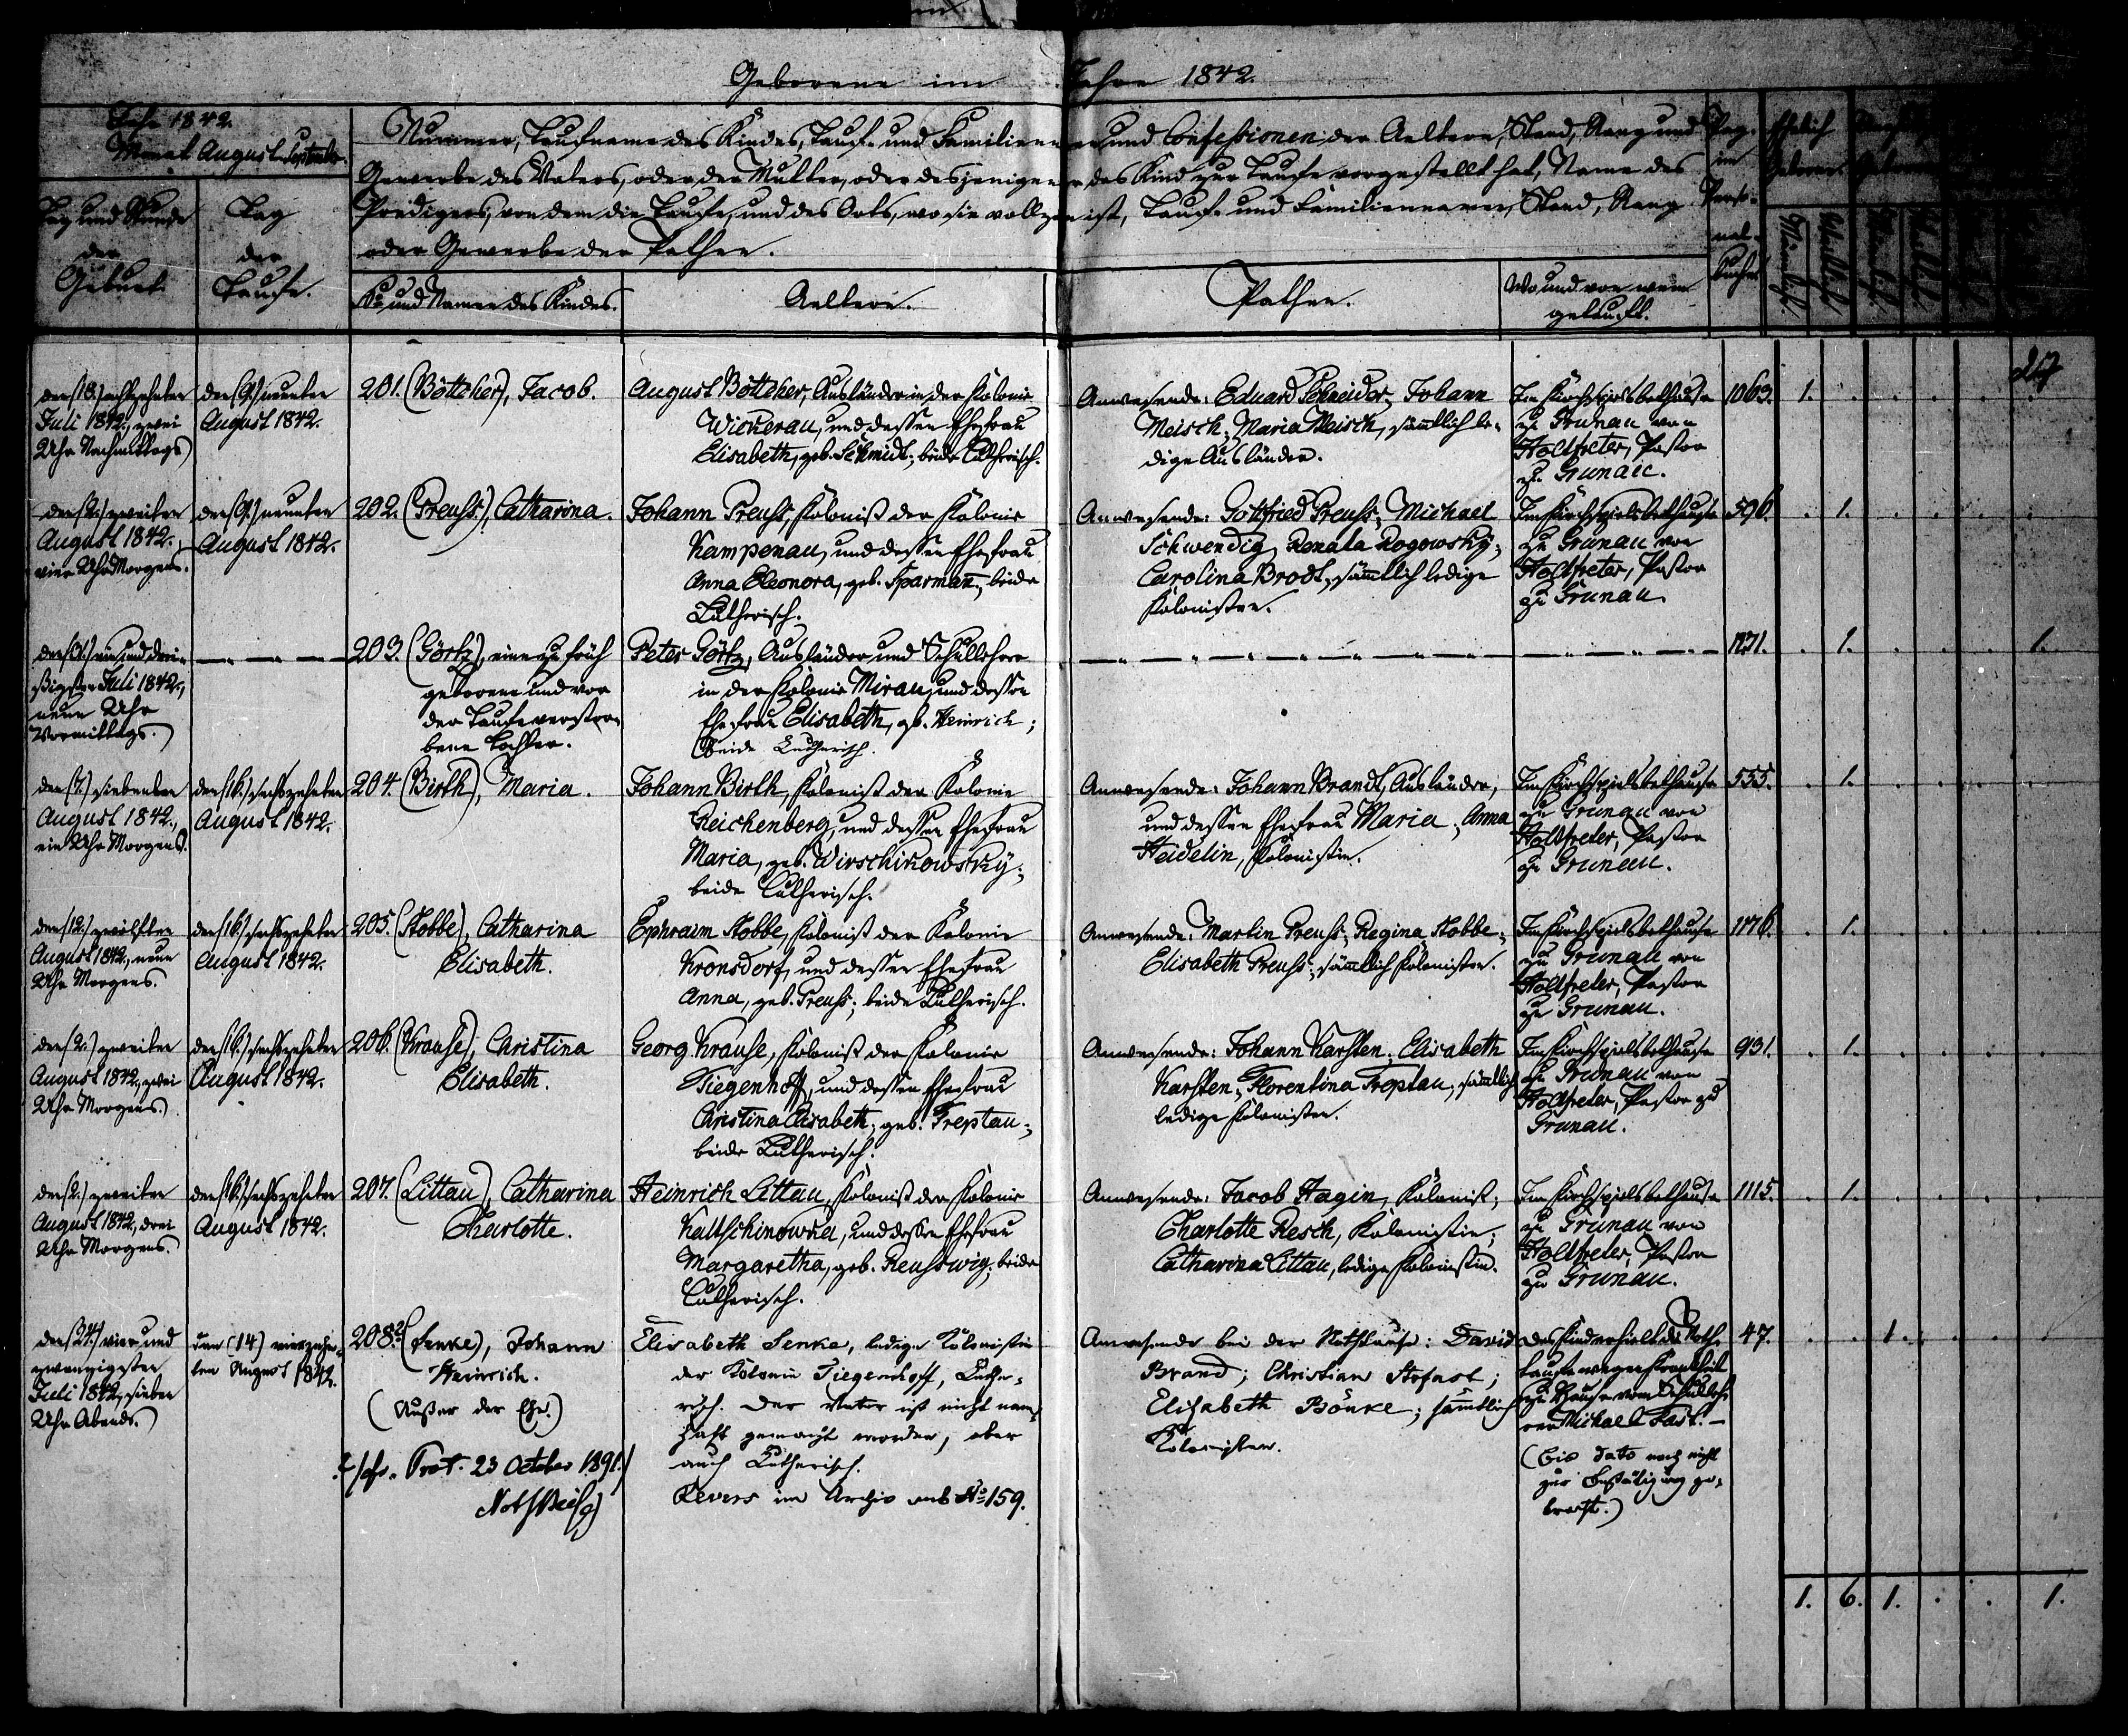 Geborene im Jahre 1842.
Jahr 1842.
Monat August. September.
Tag und Stunde
der
Geburt
Tag
der
Taufe.
Nummer, Taufname des Kindes, Tauf- und Familien und Confessionen der Aeltern, Stand, Rang und
Gewerbe des Vaters, oder der Mutter, oder desjenigen der das Kind zur Taufe vorgestellt hat, Name des
Predigers, von dem die Taufe, und des Orts, wo sie vollzogen ist, Tauf- und Familiennamen, Stand, Rang
oder Gewerbe der Pathen.
No und Namen des Kindes.
Aeltern.
Pathen.
Wo und von wem
getauft.
Pag.
im
Perso-
nal-
buche
Ehelich
Geborene
Männlich.
Weiblich.
den (18.) achtzehnten
Juli 1842., zwei
Uhr Nachmittags)
den (9.) neunten
August 1842.
201. (Böttcher), Jacob.
August Böttcher, Ausländer in der Kolonie
Wickerau, und dessen Ehefrau
Elisabeth, geb. Schmidt; beide Lutherisch.
Anwesende: Eduard Schneider, Johann
Meisch; Maria Meisch, sämtlich le-
dige Ausländer.
Im Kirchspielsbethause
zu Grunau von
Holtfreter, Pastor
zu Grunau.
1063. 1.
den (2.) zweiten
August 1842.,
vier Uhr Morgens.
den (9.) neunten
August 1842.
202. (Preuß), Catharina.
Johann Preuß, Kolonist der Kolonie
Kampenau, und dessen Ehefrau
Anna Eleonora, geb. Sparmañ; beide
Lutherisch.
Anwesende: Gottfried Preuß; Michael
Schwendig; Renata Rogowsky;
Carolina Brodt, sämtlich ledige
Kolonisten.
Im Kirchspielsbethause
zu Grunau von
Holtfreter, Pastor
zu Grunau.
596. 1.
den (31.) ein und drei-
ßigsten Juli 1842.,
neun Uhr
Vormittags.)
203. (Görtz), eine zu früh
geborene und vor
der Taufe verstor-
bene Tochter.
Peter Görtz, Ausländer und Schullehrer
in der Kolonie Mirau, und dessen
Ehefrau Elisabeth, geb. Heinrich;
beide Lutherisch.
1131. 1. 1.
den (7.) siebenten
August 1842.,
ein Uhr Morgens.
den (16.) sechszehnten
August 1842.
204. (Birth), Maria.
Johann Birth, Kolonist der Kolonie
Reichenberg, und dessen Ehefrau
Maria, geb. Wirschikowsky;
beide Lutherisch.
Anwesende: Johann Brandt, Ausländer,
und dessen Ehefrau Maria; Anna
Heidelin, Kolonistin.
Im Kirchspielsbethause
zu Grunau von
Holtfreter, Pastor
zu Grunau.
555. 1.
den (12.) zwölften
August 1842., neun
Uhr Morgens.
den (16.) sechszehnten
August 1842.
205. (Stobbe), Catharina
Elisabeth.
Ephraim Stobbe, Kolonist der Kolonie
Kronsdorf, und dessen Ehefrau
Anna, geb. Preuß; beide Lutherisch.
Anwesende: Martin Preuß; Regina Stobbe;
Elisabeth Preuß; sämtlich Kolonisten.
Im Kirchspielsbethause
zu Grunau von
Holtfreter, Pastor
zu Grunau.
1176. 1.
den (2.) zweiten
August 1842., zwei
Uhr Morgens.)
den (16.) sechszehnten
August 1842.
206. (Krause), Christina
Elisabeth.
Georg Krause, Kolonist der Kolonie
Tiegenhoff, und dessen Ehefrau
Christina Elisabeth, geb. Treptau;
beide Lutherisch.
Anwesende: Johann Karsten; Elisabeth
Karsten; Florentina Treptau, sämtlich
ledige Kolonisten.
Im Kirchspielsbethause
zu Grunau von
Holtfreter, Pastor zu
Grunau.
931. 1.
den (2.) zweiten
August 1842., drei
Uhr Morgens.
den (16.) sechszehnten
August 1842.
207. (Littau), Catharina
Charlotte.
Heinrich Littau, Kolonist der Kolonie
Kaltschinowka, und dessen Ehefrau
Margaretha, geb. Reußwig; beide
Lutherisch.
Anwesende: Jacob Hagin, Kolonist;
Charlotte Resch, Kolonistin;
Catharina Littau, ledige Kolonistin.
Im Kirchspielsbethause
zu Grunau von
Holtfreter, Pastor
zu Grunau.
1115. 1.
den (24.) vier und
zwanzigsten
Juli 1842, sieben
Uhr Abends.)
den (14) vierzehn-
ten August 1842.
208. (Senke), Johann
Heinrich.
(Außer der Ehe.)
Prot. 23 October 1891.)
Elisabeth Senke, ledige Kolonistin
der Kolonie Tiegenhoff, Luthe-
risch. Der Vater ist nicht nam-
haft gemacht worden, aber
auch Lutherisch.
Revers im Archiv sub No 159.
Anwesende bei der Nothtaufe: David
Brand; Christian Stofast;
Elisabeth Bönke; sämtlich
Kolonisten.
Das Kind erhielt die Noth-
taufe wegen Krankheit
zu Hause vom Schulleh-
rer Michael Fast.
(bis dato noch nicht
zur Bestätigung ge-
bracht.)
47. 1.
1. 6. 1. . . 1.